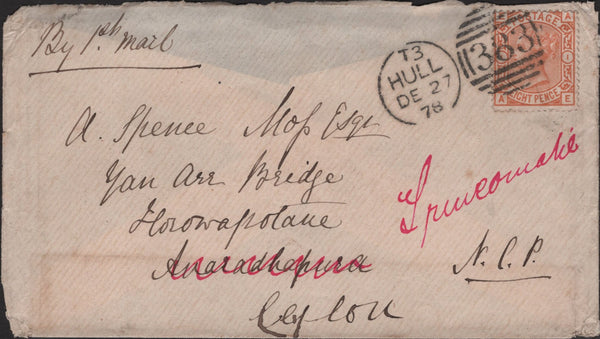 By 1st mail
T3
HULL
DE 27
78
383
POSTAGE
EIGHT PENCE
A
E
A. Spence Moss Esqr
Yan Arr Bridge
Horowapotane
Anaradhapura
Trincomalie
N.C.P.
Ceylon